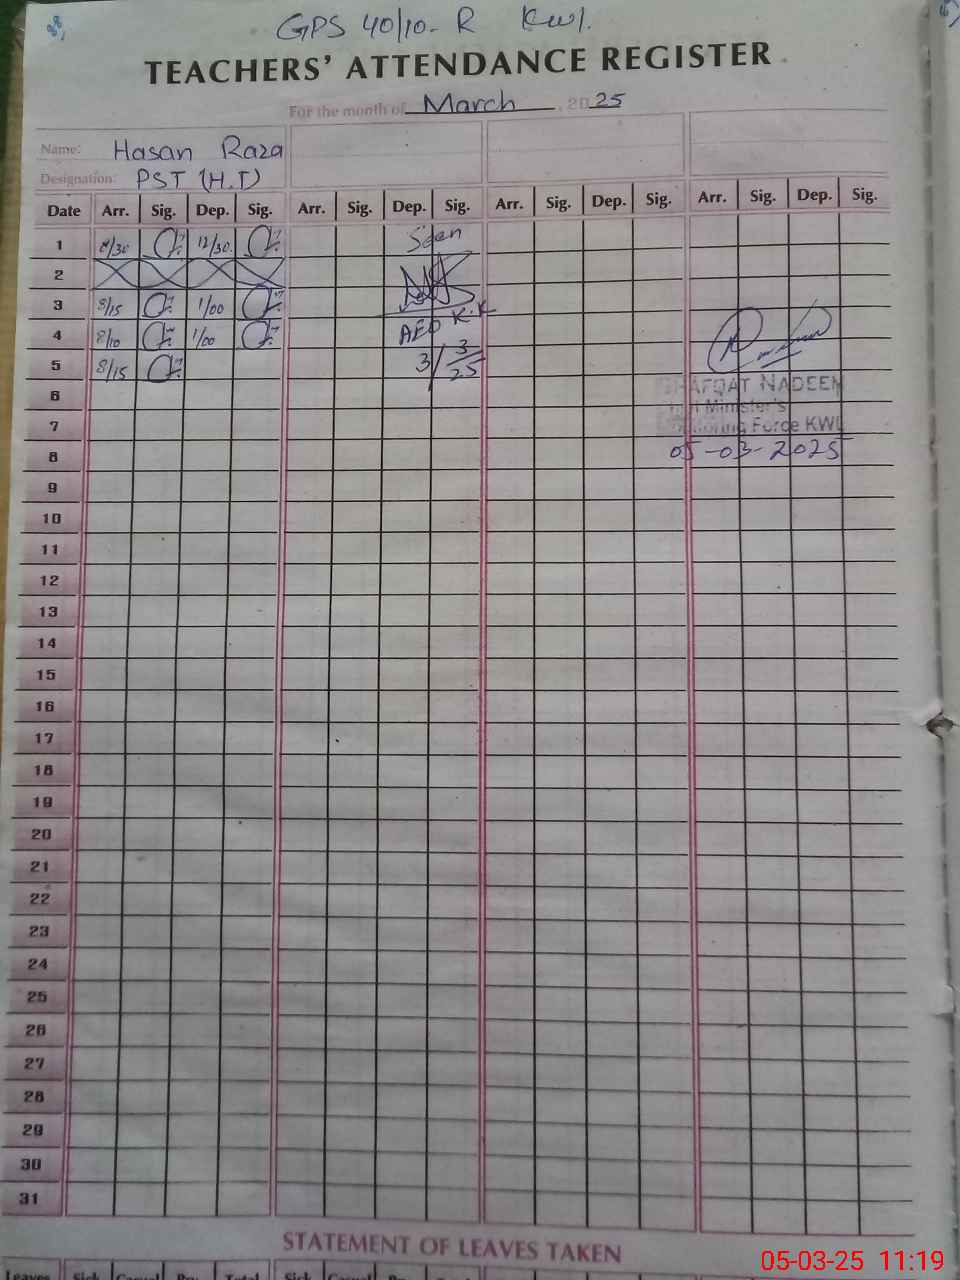 GPS 40/10-R Kwl.
TEACHERS' ATTENDANCE REGISTER
For the month of March, 2025
Name: Hasan Raza
Designation: PST (H.T)
Date Arr. Sig. Dep. Sig. Arr. Sig. Dep. Sig. Arr. Sig. Dep. Sig. Arr. Sig. Dep. Sig.
1 8/30 12/30 Seen
2
3 8/15 1/00
4 8/10 1/00 AEO K.K
5 8/15 3/3/25
6 SHAFQAT NADEEM
7 Minister's
Monitoring Force KWL
8 05-03-2025
9
10
11
12
13
14
15
16
17
18
19
20
21
22
23
24
25
26
27
28
29
30
31
STATEMENT OF LEAVES TAKEN
Leaves Sick Casual Total Sick Casual
05-03-25 11:19